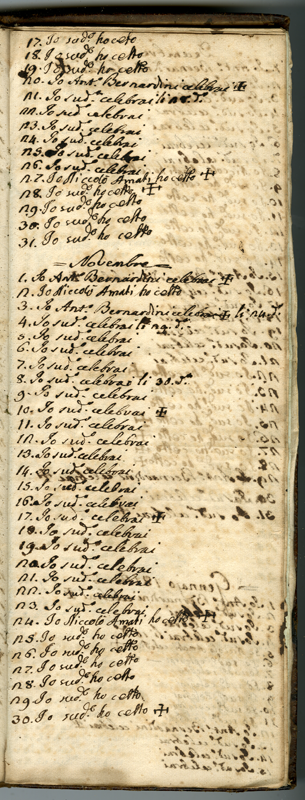 17. Io sud.º ho cetto
18. Io sud.º ho cetto
19. Io sud.º ho cetto
20. Io Ant.º Bernardini celebrai +
21. Io sud.º celebrai li
22. Io sud.º celebrai
23. Io sud.º celebrai
24. Io sud.º celebrai
25. Io sud.º celebrai
26. Io sud.º celebrai
27. Io Niccolò Amati ho cetto +
28. Io sud.º ho cetto +
29. Io sud.º ho cetto
30. Io sud.º ho cetto
31. Io sud.º ho cetto
= Novembre =
1. Io Ant.º Bernardini celebrai +
2. Io Niccolò Amati ho cetto
3. Io Ant.º Bernardini celebrai + li
4. Io sud.º celebrai
5. Io sud.º celebrai
6. Io sud.º celebrai
7. Io sud.º celebrai
8. Io sud.º celebrai li 30.
9. Io sud.º celebrai
10. Io sud.º celebrai +
11. Io sud.º celebrai
12. Io sud.º celebrai
13. Io sud.º celebrai
14. Io sud.º celebrai
15. Io sud.º celebrai
16. Io sud.º celebrai
17. Io sud.º celebrai +
18. Io sud.º celebrai
19. Io sud.º celebrai
20. Io sud.º celebrai
21. Io sud.º celebrai
22. Io sud.º celebrai
23. Io sud.º celebrai
24. Io Niccolò Amati ho cetto +
25. Io sud.º ho cetto
26. Io sud.º ho cetto
27. Io sud.º ho cetto
28. Io sud.º ho cetto
29. Io sud.º ho cetto
30. Io sud.º ho cetto +